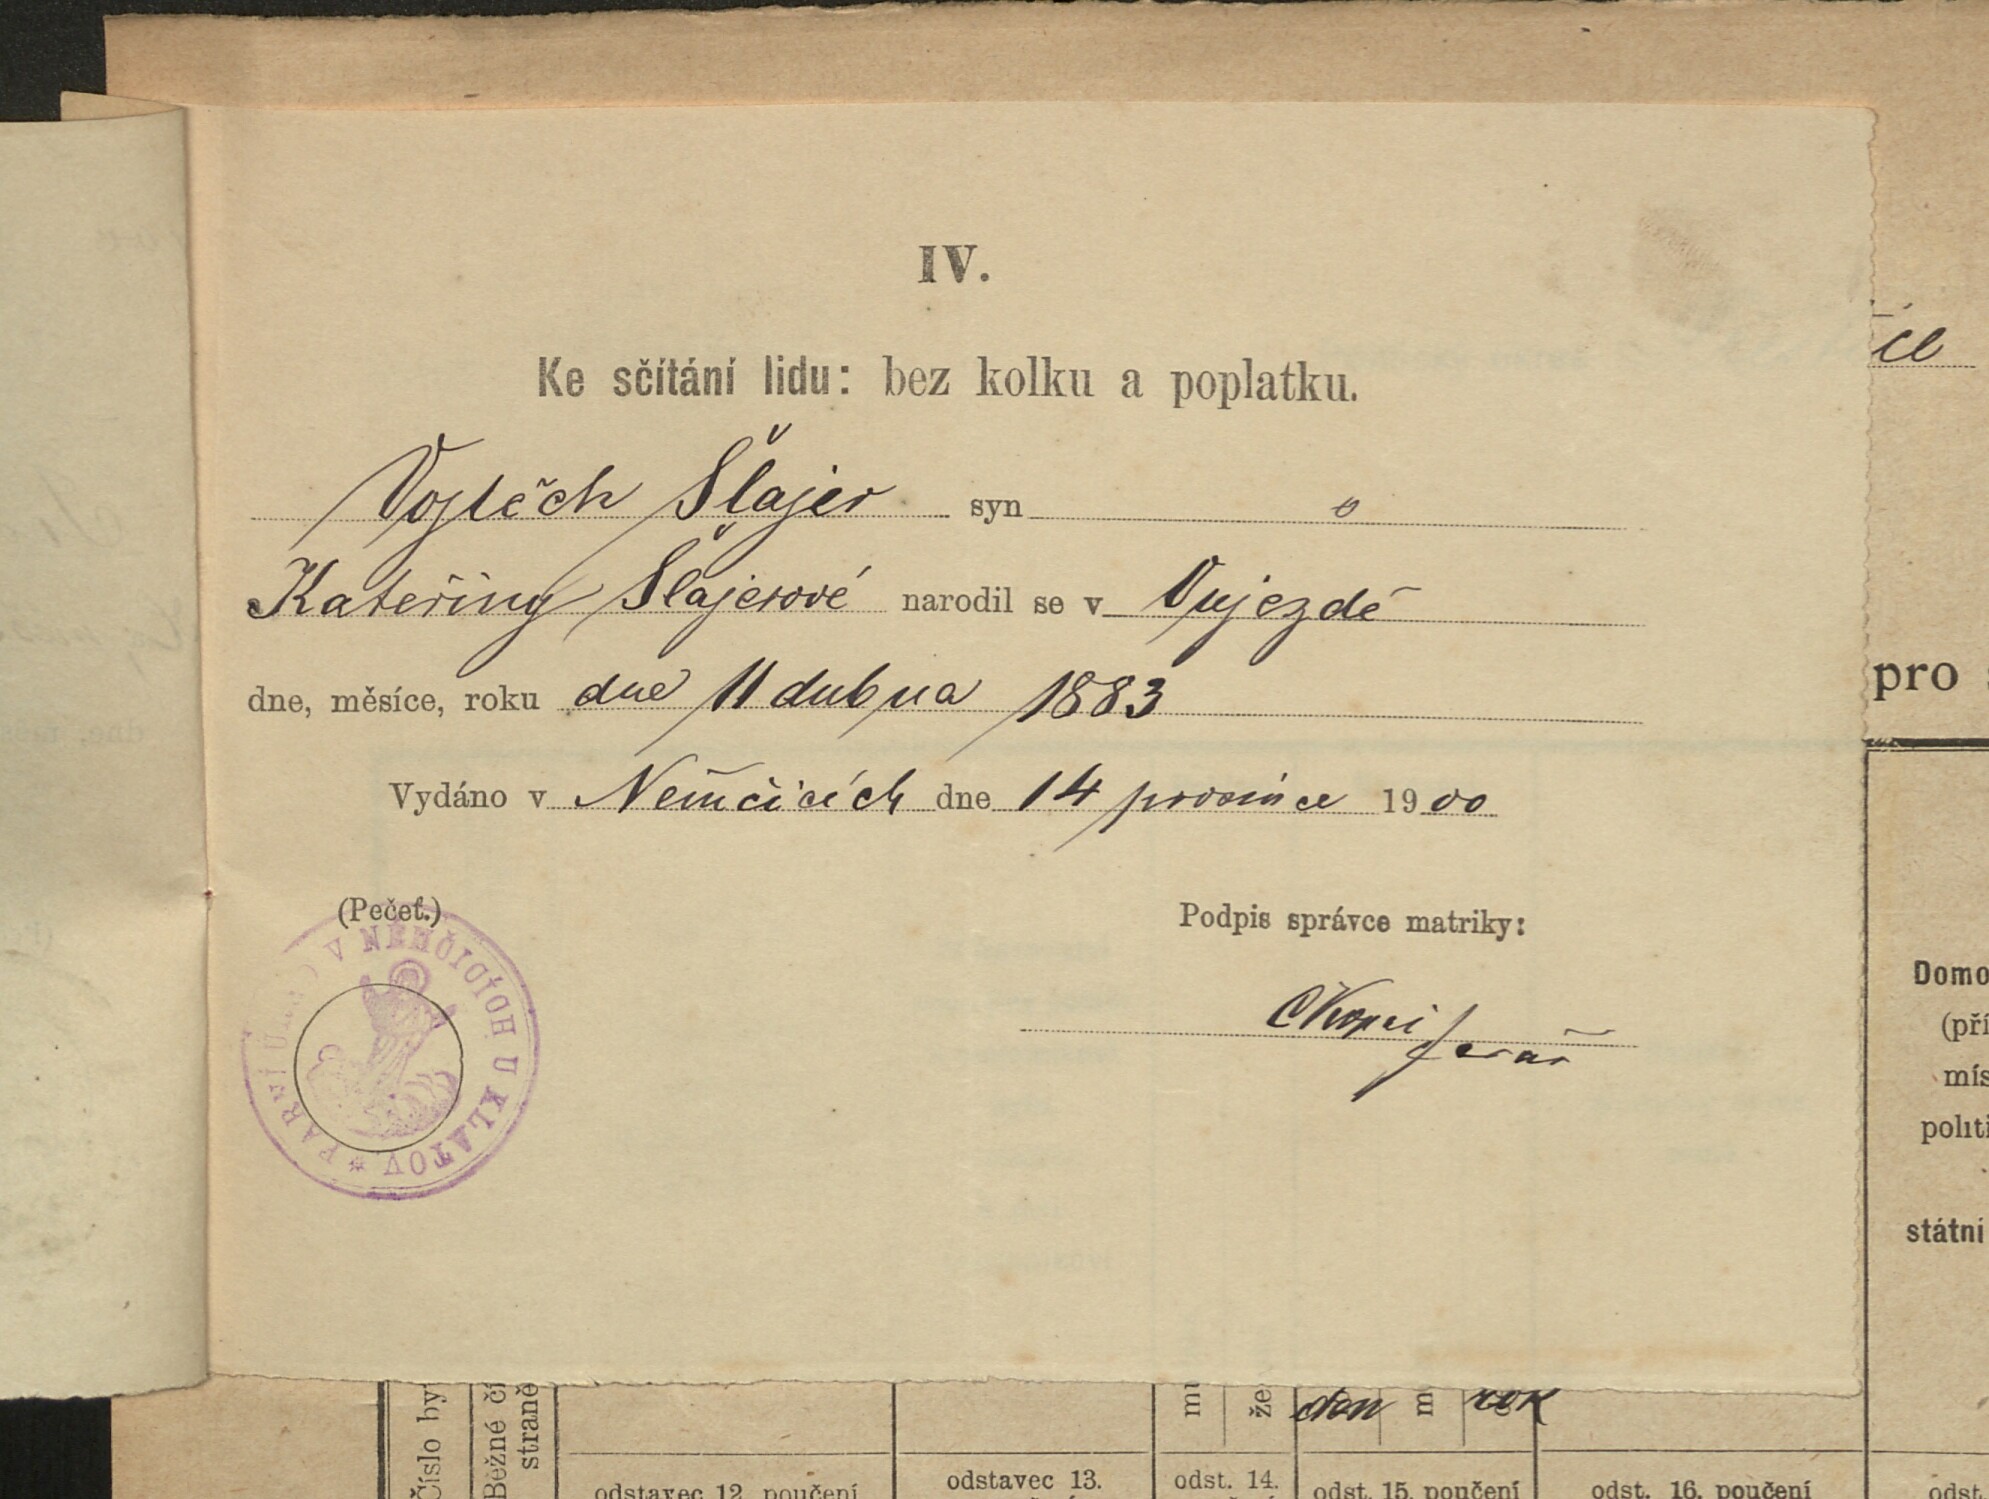 IV.
Ke sčítání lidu: bez kolku a poplatku.
Vojtěch Šlajer syn o
Kateřiny Šlajerové narodil se v Vujezdě
dne, měsíce, roku dne 11 dubna 1883
Vydáno v Němčicích dne 14 prosince 1900
(Pečeť.)
Podpis správce matriky:
farář
FARNÍ ÚŘAD V NĚMČICÍCH U KLATOV *
pro
Domo
(pří
mís
politi
státní
Číslo by
Běžné čí
straně
mu
že
den
m
rok
odstavec 12. poučení
odstavec 13.
odst. 14.
odst. 15. poučení
odst. 16. poučení
odst.